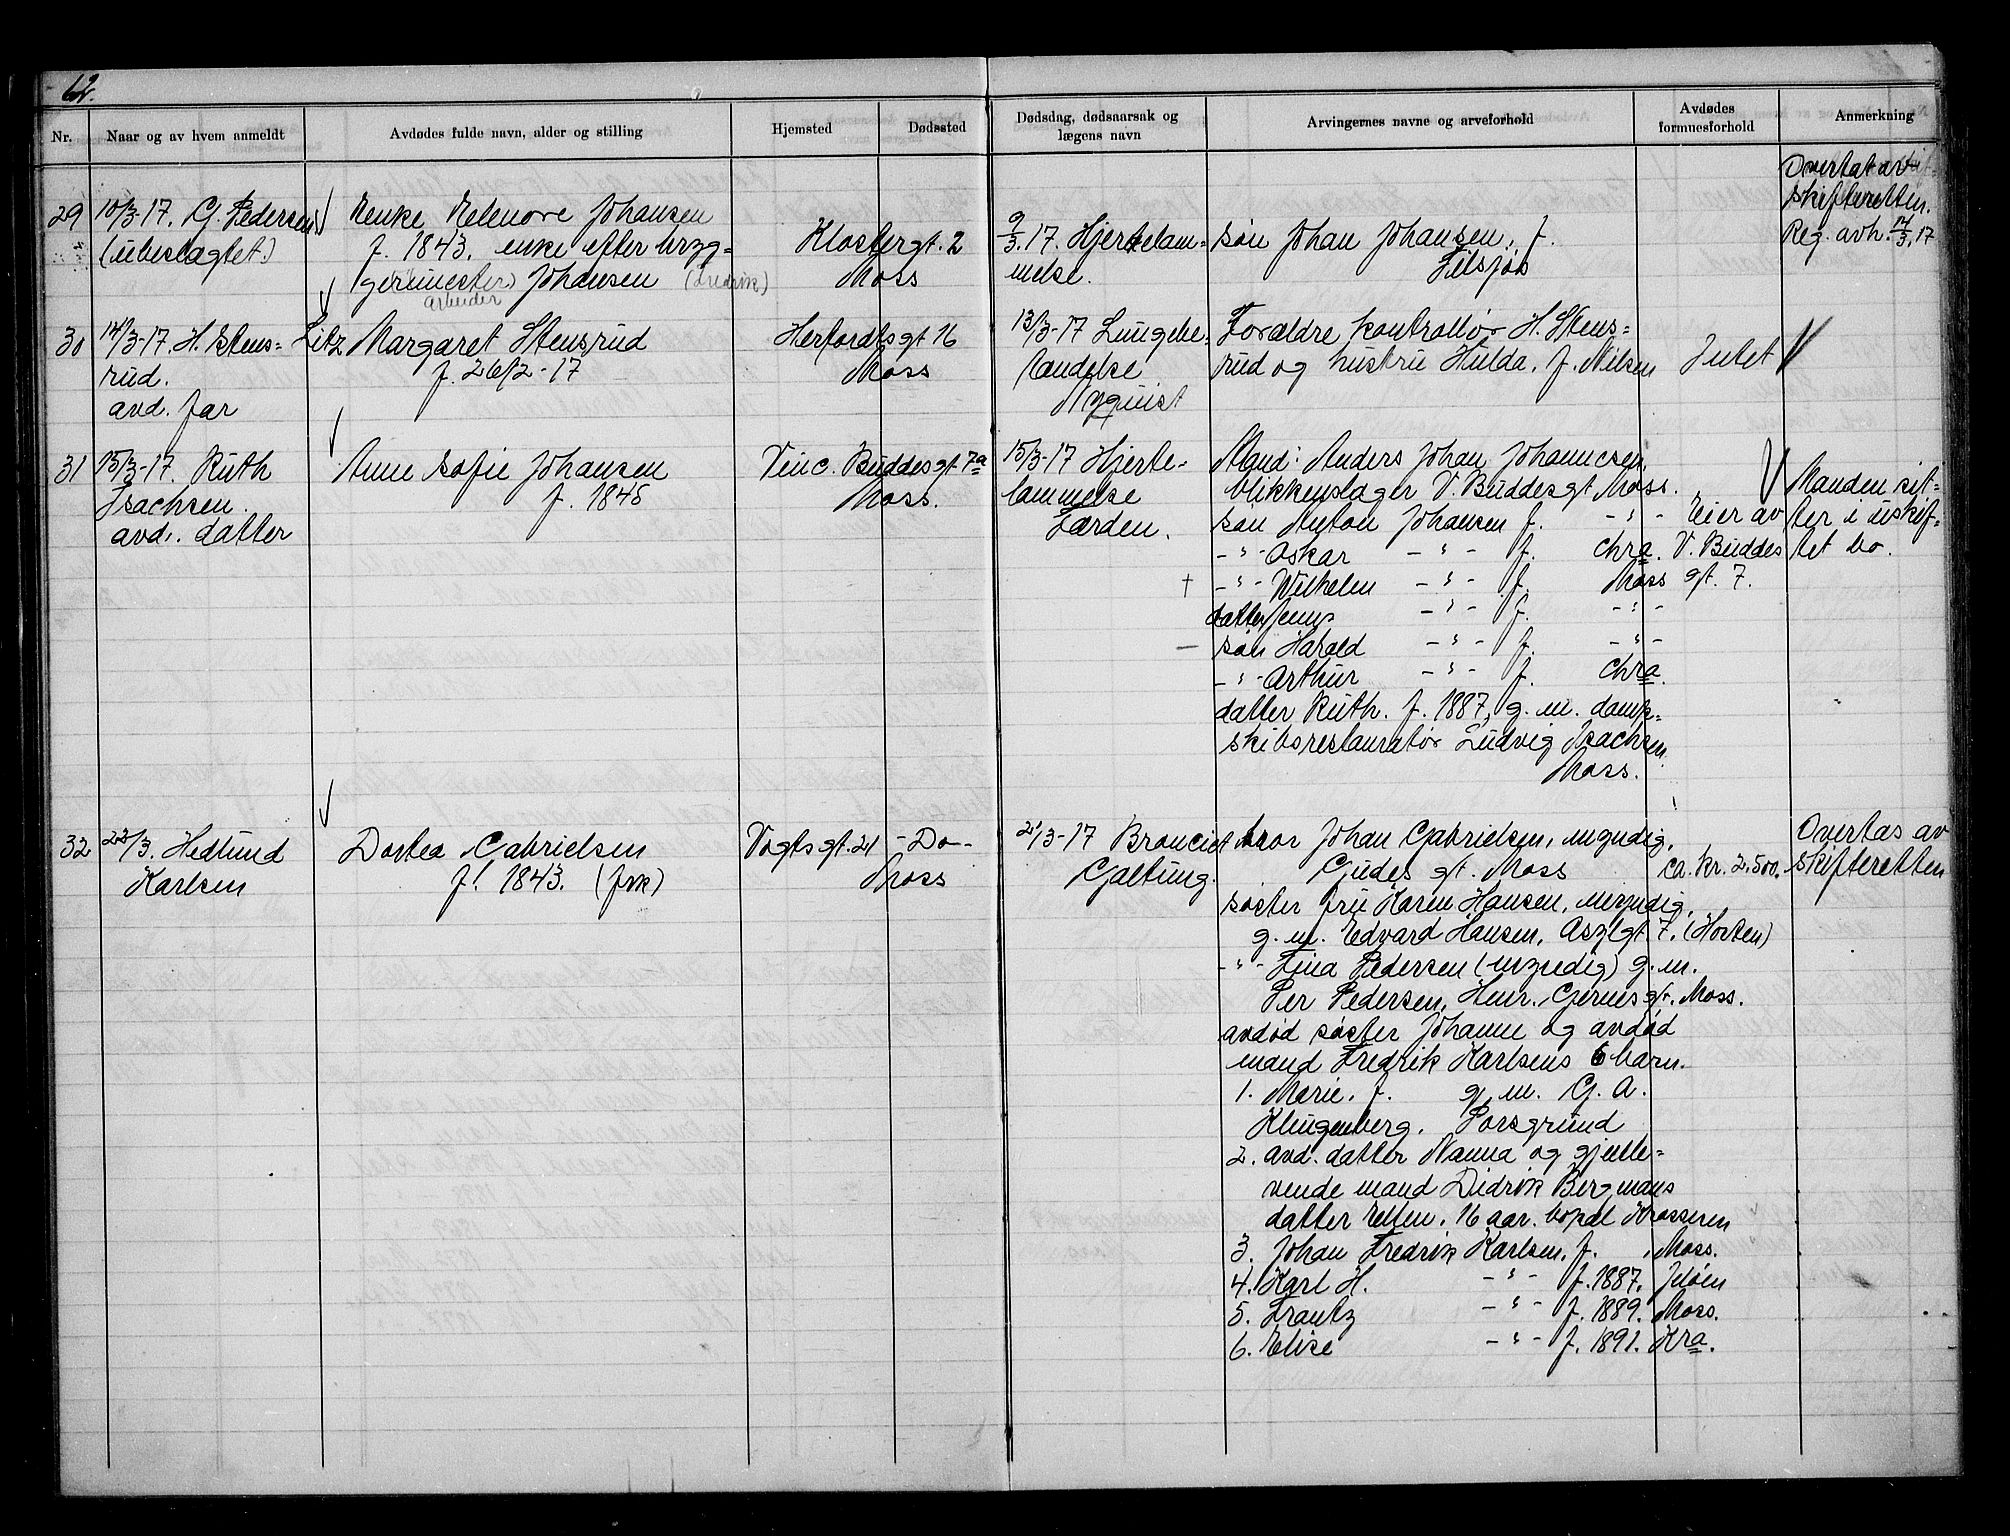 62.
Nr.
Naar og av hvem anmeldt
Avdødes fulde navn, alder og stilling
Hjemsted
Dødssted
Dødsdag, dødsaarsak og
lægens navn
Arvingernes navne og arveforhold
Avdødes
formuesforhold
Anmerkning
29
10/3-17. G. Pedersen
(ubeslagtet)
Enke Elenore Johansen
f. 1843. enke efter bryg-
germester) Johansen (Fredrik)
arbeider
Klostergt. 2
Moss
9/3.17. Hjertelam-
melse.
søn Johan Johansen, f.
Filsjøs
Overtat av
skifteretten.
Reg. avh. 14/3.17
30
14/3-17. H. Stens-
rud.
avd. far
Litz Margaret Stensrud
f. 26/2-17
Herfordtsgt 16
Moss
13/3-17 Lungebe-
tændelse
Nyquist
Forældre kontrollør H. Stens-
rud og hustru Hulda, f. Nilsen
Intet
31
15/3-17. Ruth
Isachsen.
avd. datter
Anne Sofie Johansen
f. 1845
Vinc. Buddesgt. 7a
Moss.
15/3-17 Hjerte-
lammelse
Færden.
Mand: Anders Johan Johannesen,
blikkenslager V. Buddesgt Moss.
søn Anton Johansen f. -"-
-"- Oskar -"- f. Chra.
+ -"- Wilhelm -"- f. Moss
datter Jenny -"- f. -"-
— søn Harald -"- f. -"-
-"- Arthur -"- f. Chra.
datter Ruth. f. 1887, g. m. damp-
skibsrestauratør Ludvig Isachsen
Moss.
Eier av
V. Buddes
gt. 7.
Manden sit-
ter i uskif-
tet bo.
32
22/3. Hedlund
Karlsen
Dortea Gabrielsen
f. 1843. (frk)
Vogtsgt. 21
-Do-
Moss
21/3-17 Bronciet
Galtung.
bror Johan Gabrielsen, myndig,
Gudes gt. Moss
søster fru Karen Hansen, myndig,
g. m. Edvard Hansen, Asylgt. 7. (Horten)
-"- Fina Pedersen (myndig) g. m.
Per Pedersen, Henr. Gernesgt. Moss.
avdød søster Johanne og avdød
mand Fredrik Karlsens 6 barn.
1. Marie, f. g. m. G. A.
Klingenberg. Porsgrund
2. avd. datter Nanna og gjenle-
vende mand Didrik Bergmans
datter Ellen, 16 aar. bopæl Krosseren
3. Johan Fredrik Karlsen, f. Moss.
4. Karl H. -"- f. 1887. Jeløen
5. Frantz -"- f. 1889. Moss.
6. Elise -"- f. 1891. Kra.
ca. kr. 2,500.
Overtas av
skifteretten